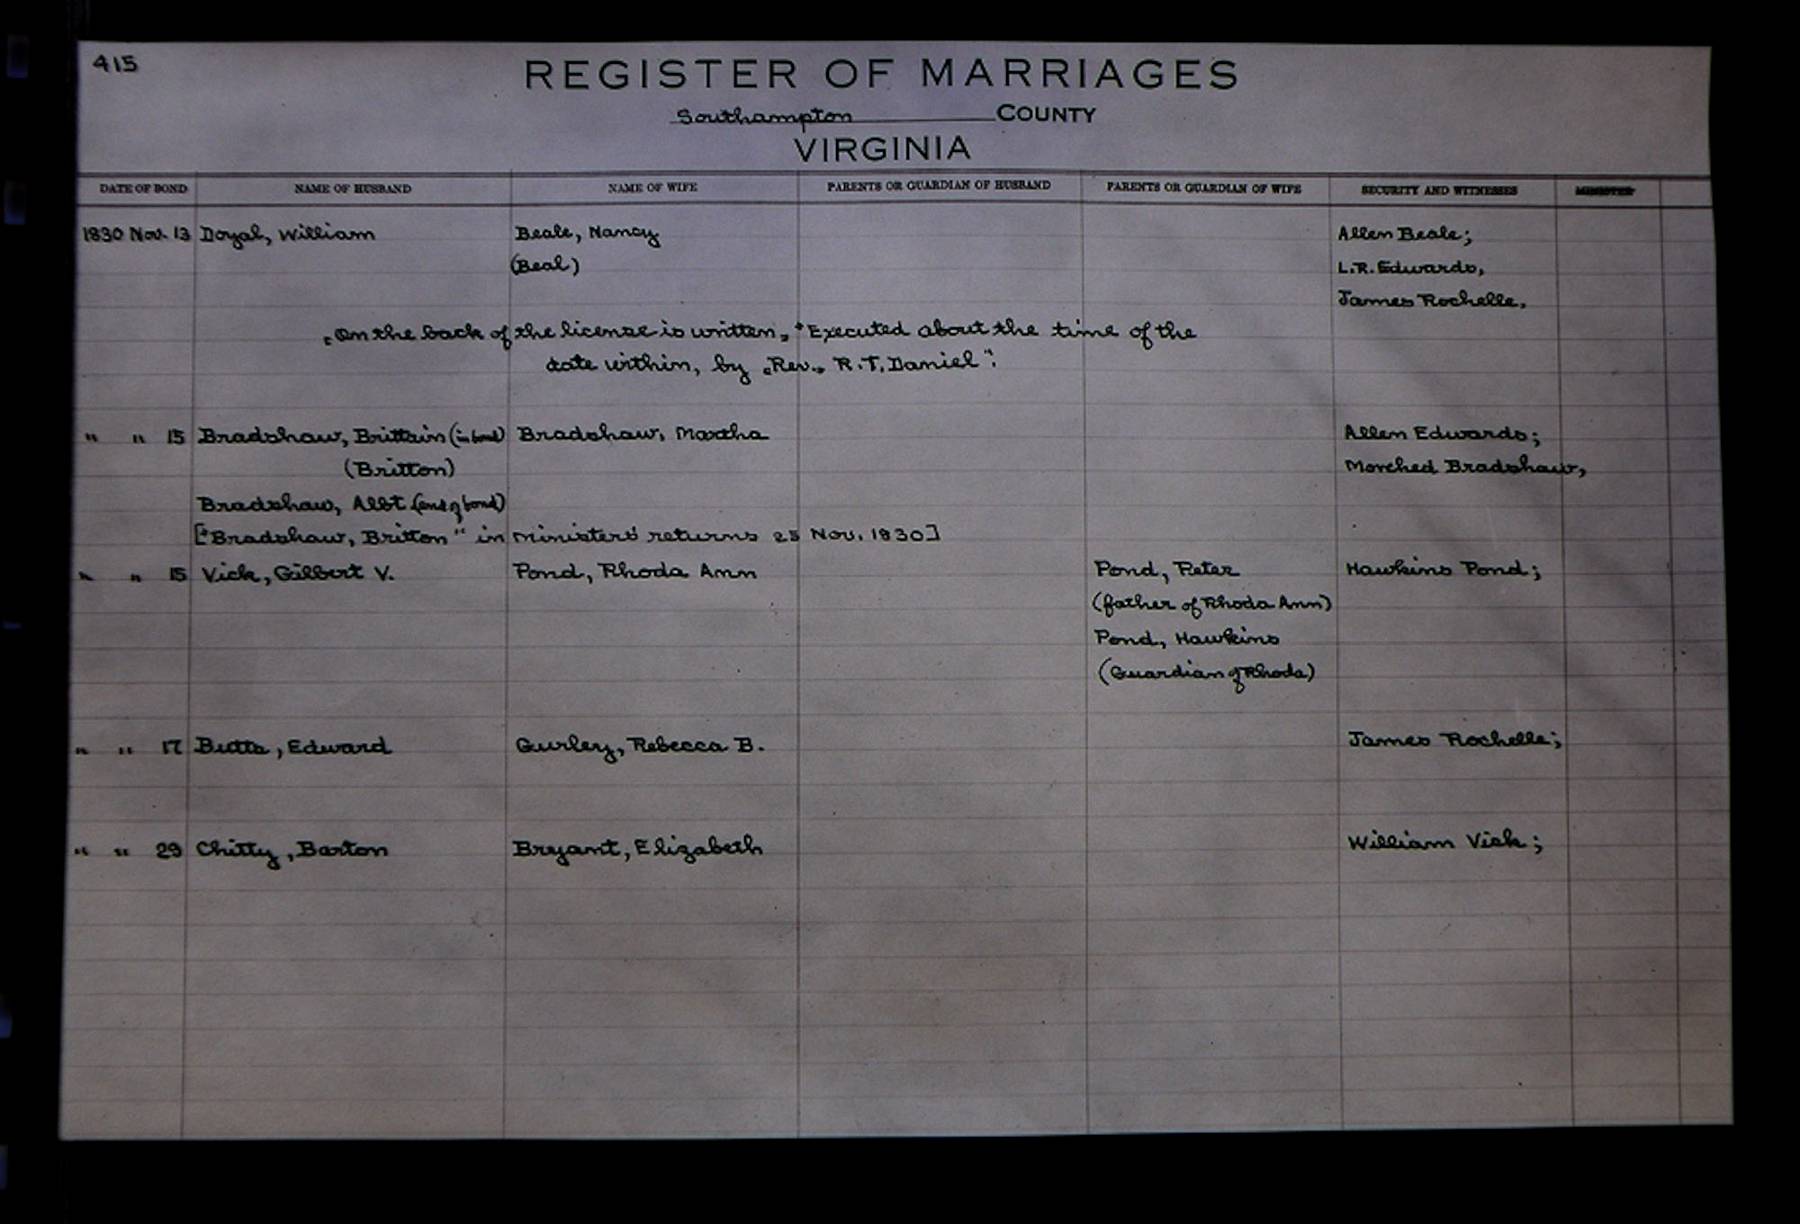 415
REGISTER OF MARRIAGES
Southampton COUNTY
VIRGINIA
DATE OF BOND NAME OF HUSBAND NAME OF WIFE PARENTS OR GUARDIAN OF HUSBAND PARENTS OR GUARDIAN OF WIFE SECURITY AND WITNESSES MINISTER
1830 Nov. 13 Doyal, William Beale, Nancy Allen Beale;
(Beal) L.R. Edwards,
James Rochelle.
On the back of the license is written, "Executed about the time of the
date within, by Rev. R.T. Daniel".
" " 15 Bradshaw, Brittain (in bond) Bradshaw, Martha Allen Edwards;
(Britton) Moreched Bradshaw,
Bradshaw, Albt (end of bond)
["Bradshaw, Britton" in ministers' returns 25 Nov. 1830]
" " 15 Vick, Gilbert V. Pond, Rhoda Ann Pond, Peter Hawkins Pond;
(father of Rhoda Ann)
Pond, Hawkins
(Guardian of Rhoda)
" " 17 Butts, Edward Gurley, Rebecca B. James Rochelle;
" " 29 Chitty, Barton Bryant, Elizabeth William Vick;